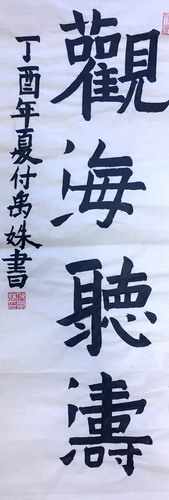 觀海聽濤
丁酉年夏付禹姝書